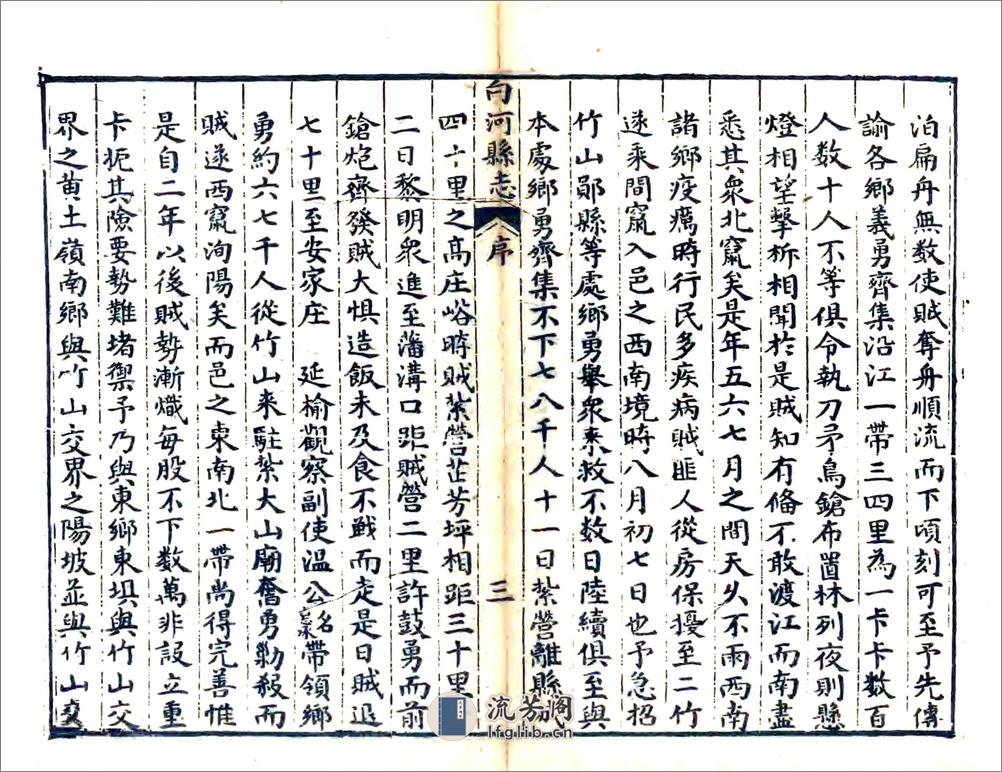 泊扁舟無数使賊奪舟順流而下頃刻可至予先傳
諭各鄉義勇齊集沿江一帶三四里為一卡卡数百
人数十人不等俱令執刀矛鳥鎗布置林列夜則懸
燈相望擊柝相聞於是賊知有俻不敢渡江而南盡
悉其衆北竄矣是年五六七月之間天久不雨西南
諸鄉疫癘時行民多疾病賊匪人從房保擾至二竹
遂乘間竄入邑之西南境時八月初七日也予急招
竹山鄖縣等處鄉勇舉衆来救不数日陸續俱至與
本處鄉勇齊集不下七八千人十一日紥營離縣城
白河縣志 序 三
四十里之髙庄峪時賊紥營茫芳坪相距三十里
二日黎明衆進至藩溝口距賊營二里許鼓勇而前
鎗炮齊發賊大惧造飯未及食不戰而走是日賊退
七十里至安家庄 延榆觀察副使温公名承帶領鄉
勇約六七千人從竹山来駐紥大山廟奮勇勦殺而
賊遂西竄洵陽矣而邑之東南北一帶尚得完善惟
是自二年以後賊勢漸熾每股不下数萬非設立重
卡扼其險要勢難堵禦予乃與東鄉東垻與竹山交
界之黄土嶺南鄉與竹山交界之陽坡並與竹山交
流芳阁
lfglib.cn